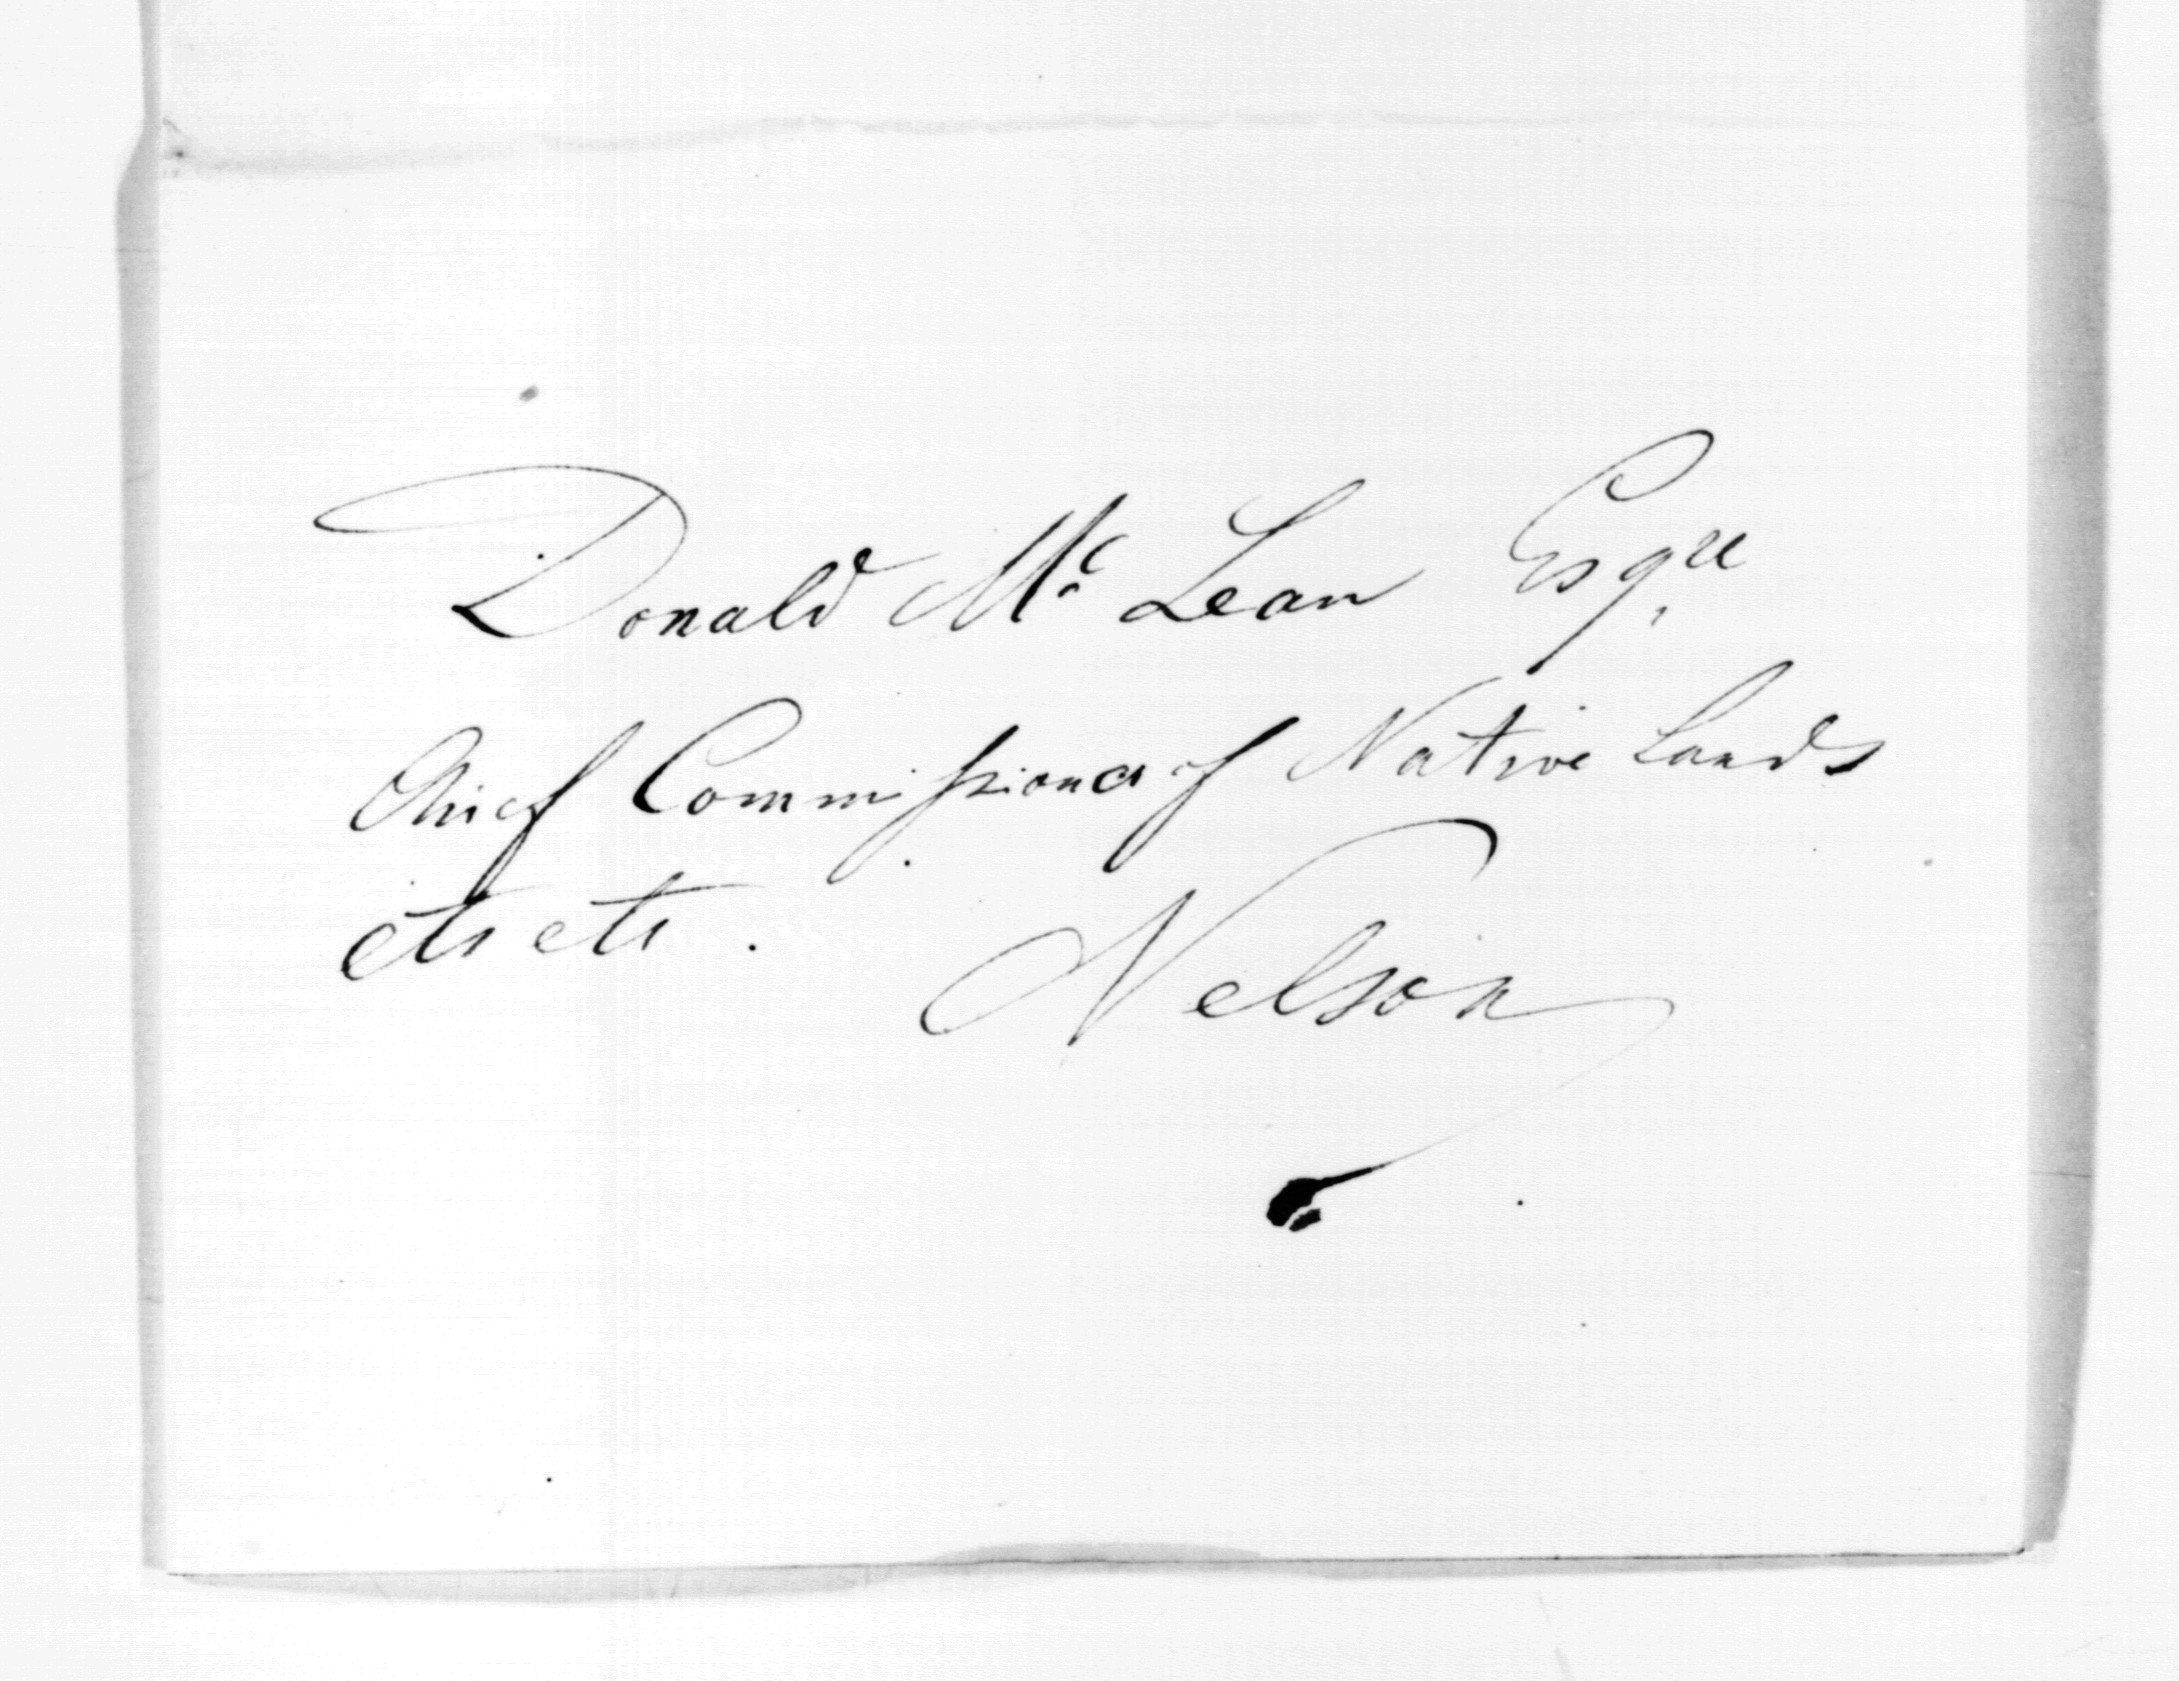 Donald Mc Lean Esqre
Chief Commissioner of Native Lands
etc etc.
Nelson